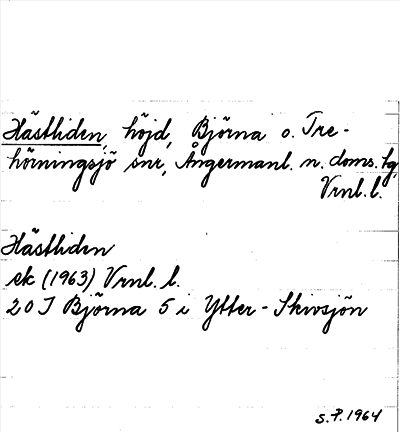 Hästliden, höjd, Björna o. Tre-
hörningsjö snr, Ångermanl. n. doms. lg,
Vrnl. l.
Hästliden
ek (1963) Vrnl. l.
20 J Björna 5 i Ytter-Skivsjön
S.P. 1964